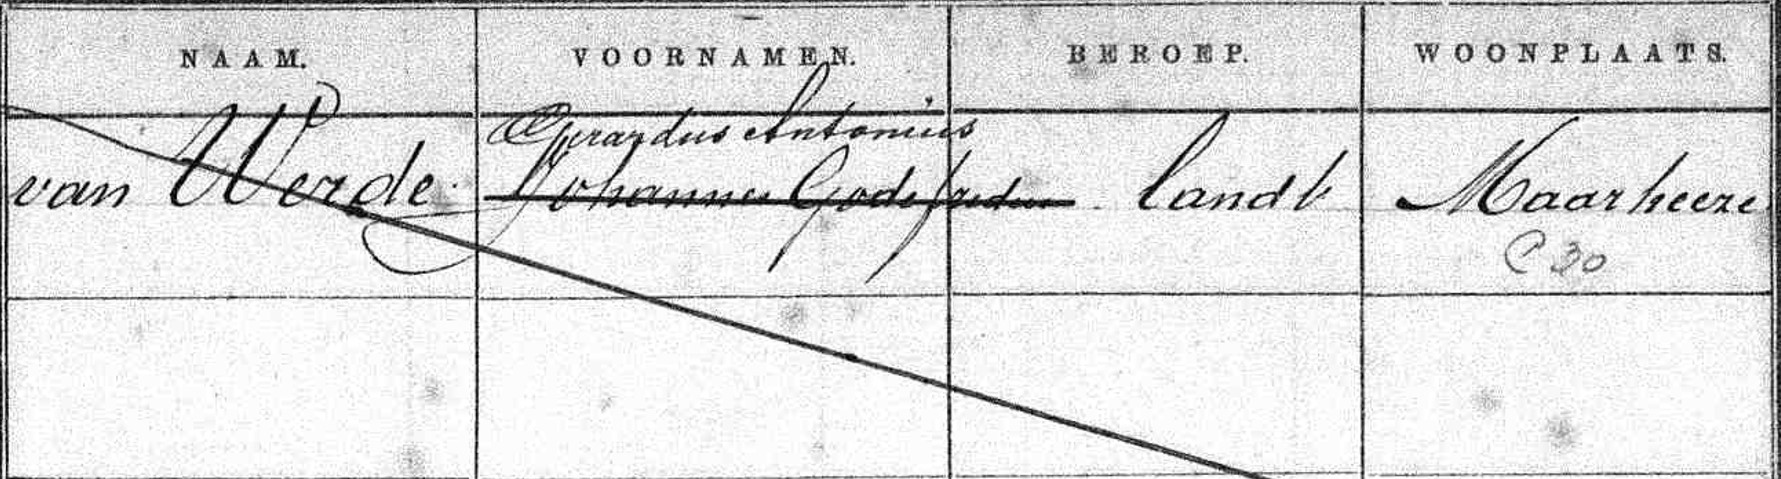 NAAM. VOORNAMEN. BEROEP. WOONPLAATS.
Gerardus Antonius
van Werde Johannes Godefridus landb Maarheeze
C 30